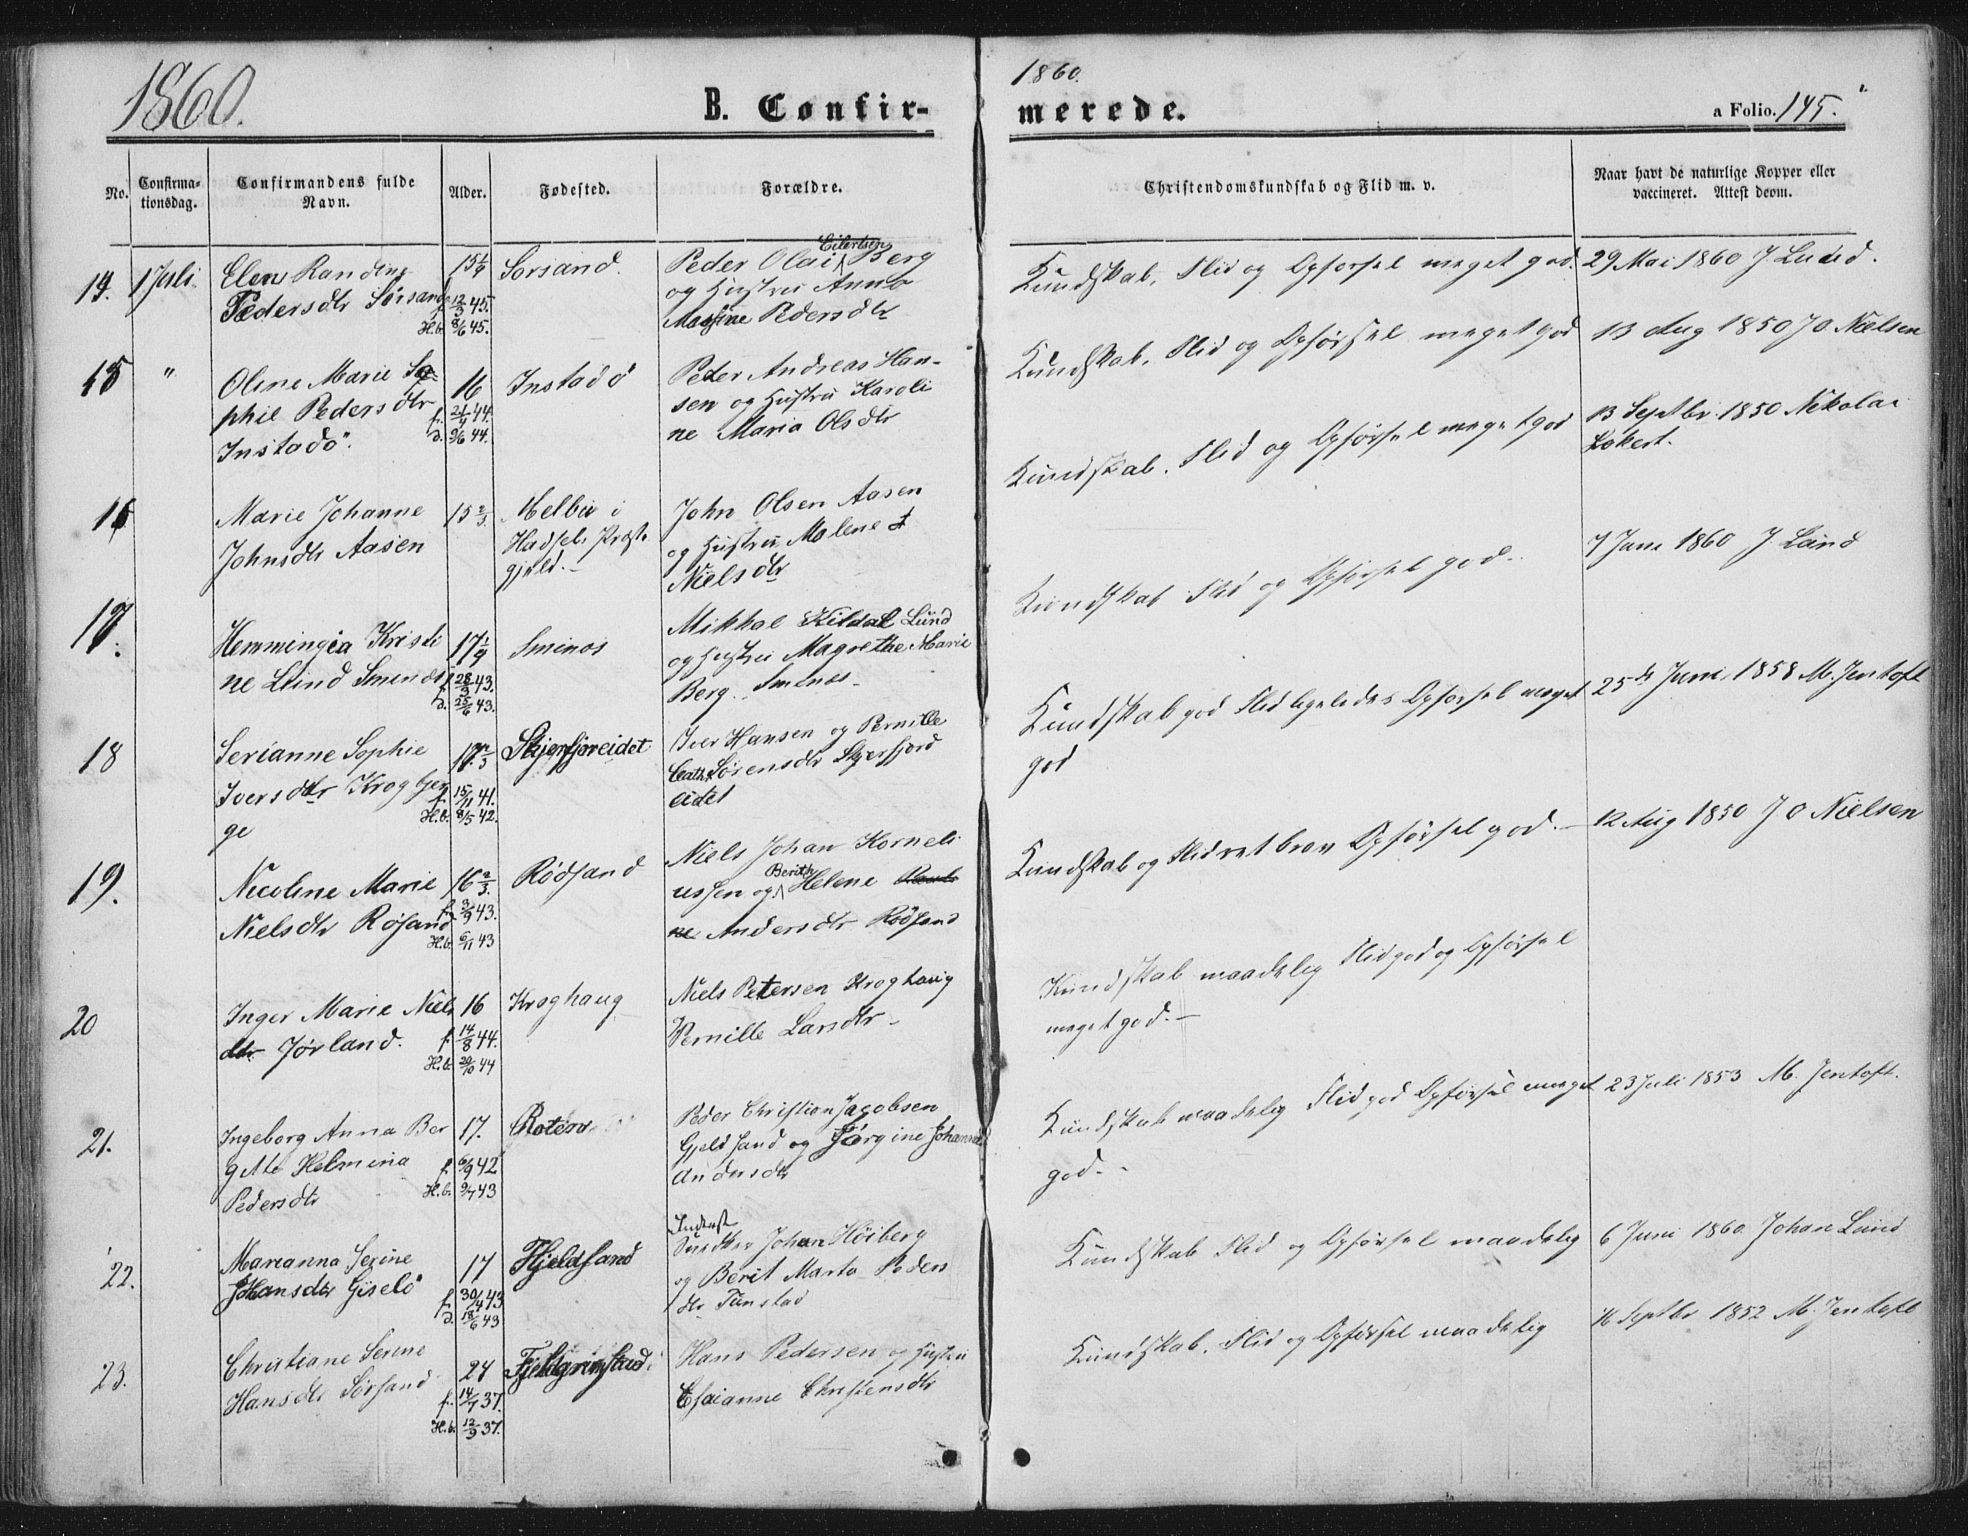 1860.
B. Confir-
1860.
merede.
a Folio. 145.
No.
Confirma-
tionsdag.
Confirmandens fulde
Navn.
Alder.
Fødested.
Forældre.
Christendomskundskab og Flid m. v.
Naar havt de naturlige Kopper eller
vaccineret. Attest derom.
14. 1 Juli. Elen Randine 15 1/4 Sørsand. Peder Olai Eilertsen Berg
Pedersdtr Sørsand f. 12/3 45. og Hustru Anna
H.b. 8/6 45. Pedersdtr
Kundskab, Flid og Opførsel meget god. 29 Mai 1860 J. Lund.
15 " Oline Marie So- 16 Instadø Peder Andreas Han-
phie Pedersdtr f. 21/4 44. sen og Hustru Karoli
Instadø". d. 9/6 44. ne Maria Olsdtr
Kundskab, Flid og Opførsel meget god 13 Aug 1850 J O Nielsen
16 Marie Johanne 15 2/3 Melbu i John Olsen Aasen
Johnsdtr Aasen Hadsel Præste og Hustru Malene
gjeld.- Nielsdtr
Kundskab, Flid og Opførsel meget god 13 Septbr. 1850 Nikolai
Lokert.
17. Hemmingia Kristi 17 1/4 Smines Mikkal Kildal Lund
ne Lund Smines f. 28/3 43. og Hustru Magrethe Marie
d. 25/6 43. Berg. Smines-
Kundskab Flid og Opførsel god.- 7 Juni 1860 J Lund
18 Serianne Sophie Skjerfjoreidet Iver Hansen og Pernille
Iversdtr Krogbjer f. 15/11 41. Cath. Sørensdtr Skjerfjord
ge H.b. 8/5 42. eidet
Kundskab god Flid ligeledes Opførsel meget 25de Juni 1858 M. Jentoft
god
19. Nicoline Marie 16 2/3. Rødsand Niels Johan Korneli
Nielsdtr Røsand f. 3/3 43. ussen og Berith Helene
H.b. 6/11 43 Andersdtr Rødsand
Kundskab og Flid ret brav Opførsel god.- 12 Aug 1850 J O Nielsen
20 Inger Marie Niels 16 Kroghaug Niels Petersen Kroghaug
dtr Jørland. f. 14/8 44. Pernille Larsdtr-
H.b. 20/10 44
Kundskab maadelig Flid god og Opførsel
meget god.-
21. Ingeborg Anna Ber 17. Roten Peder Christian Jacobsen
gitte Helmina f. 6/9 42 Gjeldsand og Jørgine Johanna
Pedersdtr H.b. 9/7 43 Andersdtr
Kundskab maadelig Flid god Opførsel meget 23 Juli 1853 M. Jentoft.
god.-
22. Marianna Sezine 17 Hjeldsand Inderst Johan Høiberg
Johansdtr Gisclø f. 30/4 43 og Berit Marta Peders
d. 18/6 43 dtr Tunstad
Kundskab Flid og Opførsel maadelig 6 Juni 1860 Johan Lund
23. Christiane Serine 24 Fjeldgrimstad Hans Pedersen og Hustru
Hansdtr Sørsand f. 14/7 37. Esaianne Christensdtr
H.b. 12/9 37.
Kundskab, Flid og Opførsel maadelig 16 Septbr 1852 M. Jentoft